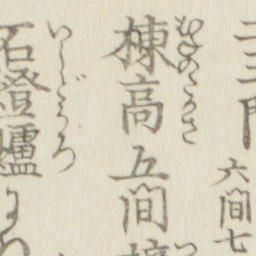 二三門
六間七
むねのたかさ
棟高五間
いしどうろ
石燈爐より